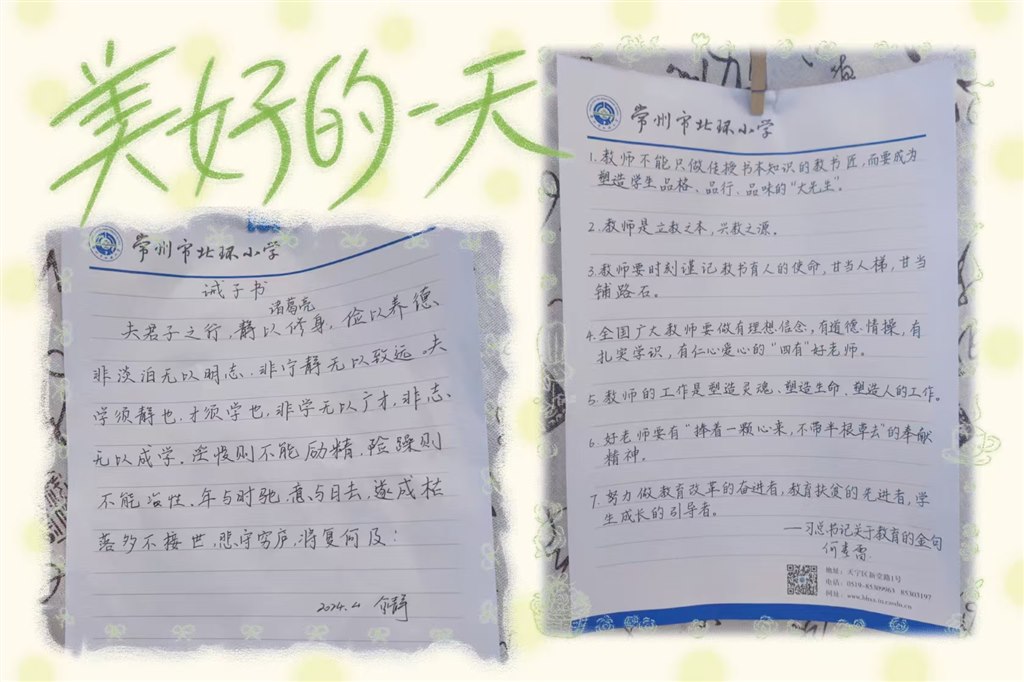 美好的一天
常州市北环小学
诫子书
诸葛亮
夫君子之行,静以修身,俭以养德、
非淡泊无以明志、非宁静无以致远、夫
学须静也、才须学也,非学无以广才,非志、
无以成学、淫慢则不能励精、险躁则
不能冶性、年与时驰,意与日去、遂成枯
落多不接世,悲守穷庐,将复何及!
2024.4
常州市北环小学
1.教师不能只做传授书本知识的教书匠,而要成为
塑造学生品格、品行、品味的“大先生”。
2.教师是立教之本,兴教之源。
3.教师要时刻谨记教书育人的使命,甘当人梯,甘当
铺路石。
4.全国广大教师要做有理想信念,有道德情操,有
扎实学识,有仁心爱心的“四有”好老师。
5.教师的工作是塑造灵魂、塑造生命、塑造人的工作。
6.好老师要有“捧着一颗心来,不带半根草去”的奉献
精神。
7.努力做教育改革的奋进者,教育扶贫的先进者,学
生成长的引导者。
——习总书记关于教育的金句
地址:天宁区新堂路1号
电话:0519-85309963 85303197